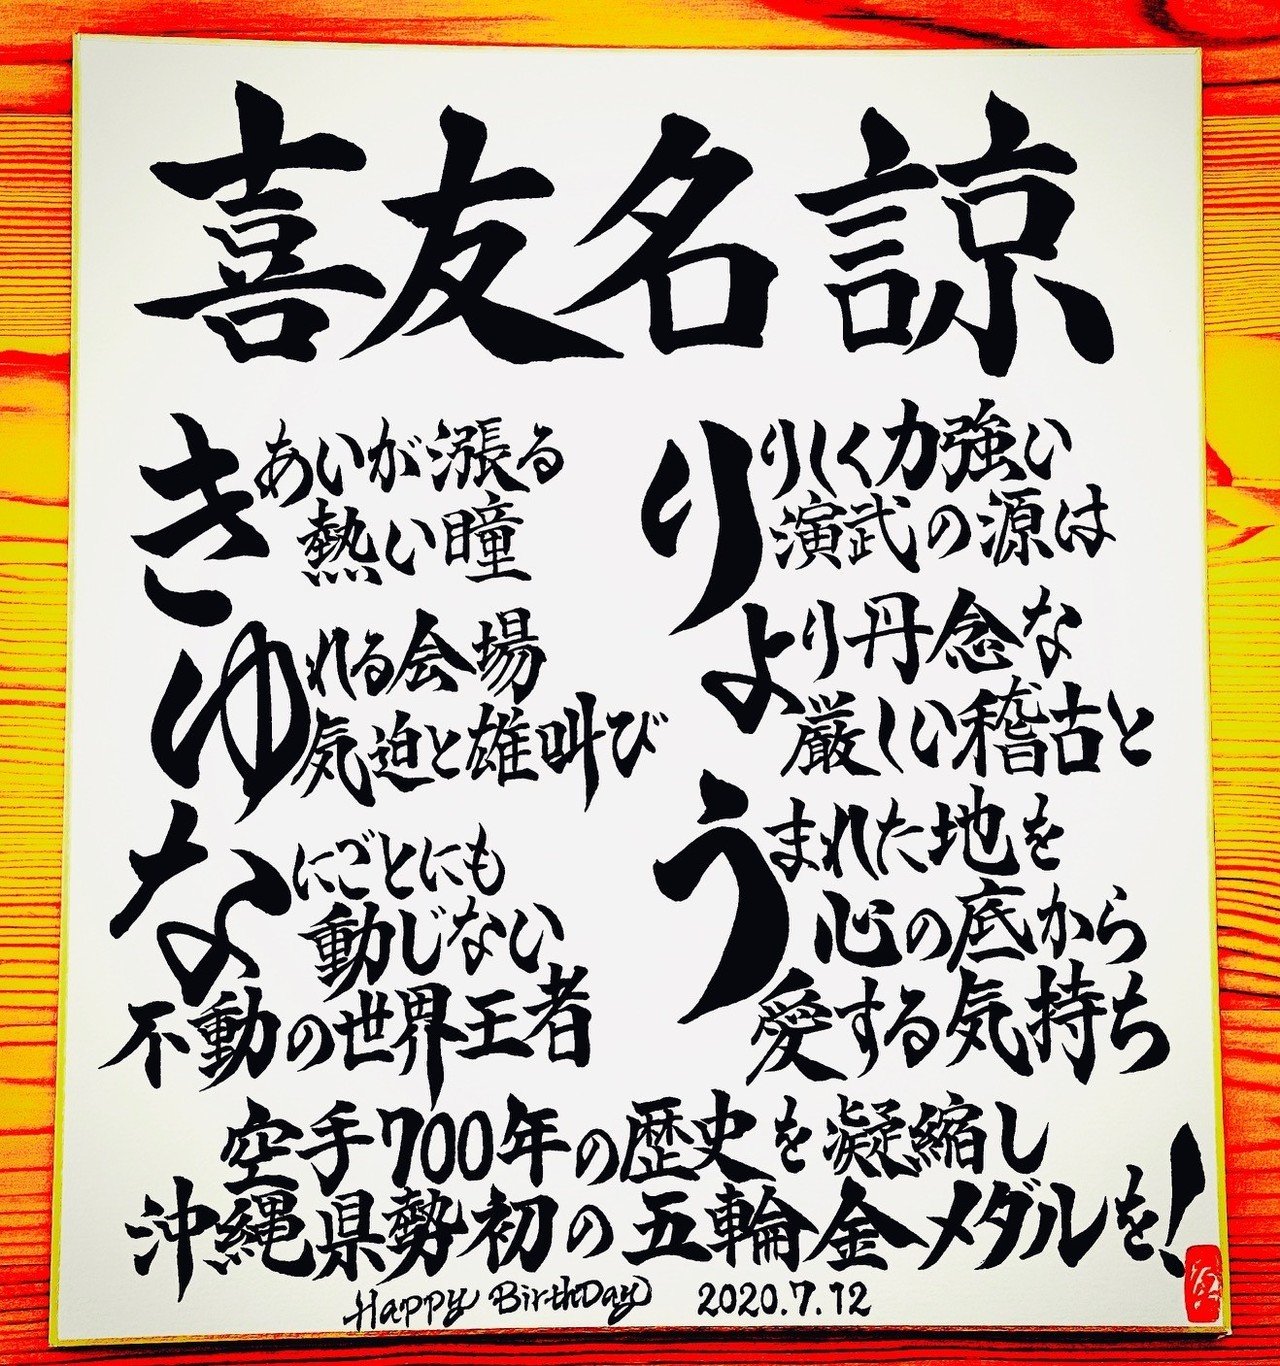 喜友名 諒
きあいが漲る
熱い瞳
ゆれる会場
気迫と雄叫び
なにごとにも
動じない
不動の世界王者
りりしく力強い
演武の源は
より丹念な
厳しい稽古と
うまれた地を
心の底から
愛する気持ち
空手700年の歴史を凝縮し
沖縄県勢初の五輪金メダルを!
Happy BirthDay 2020.7.12